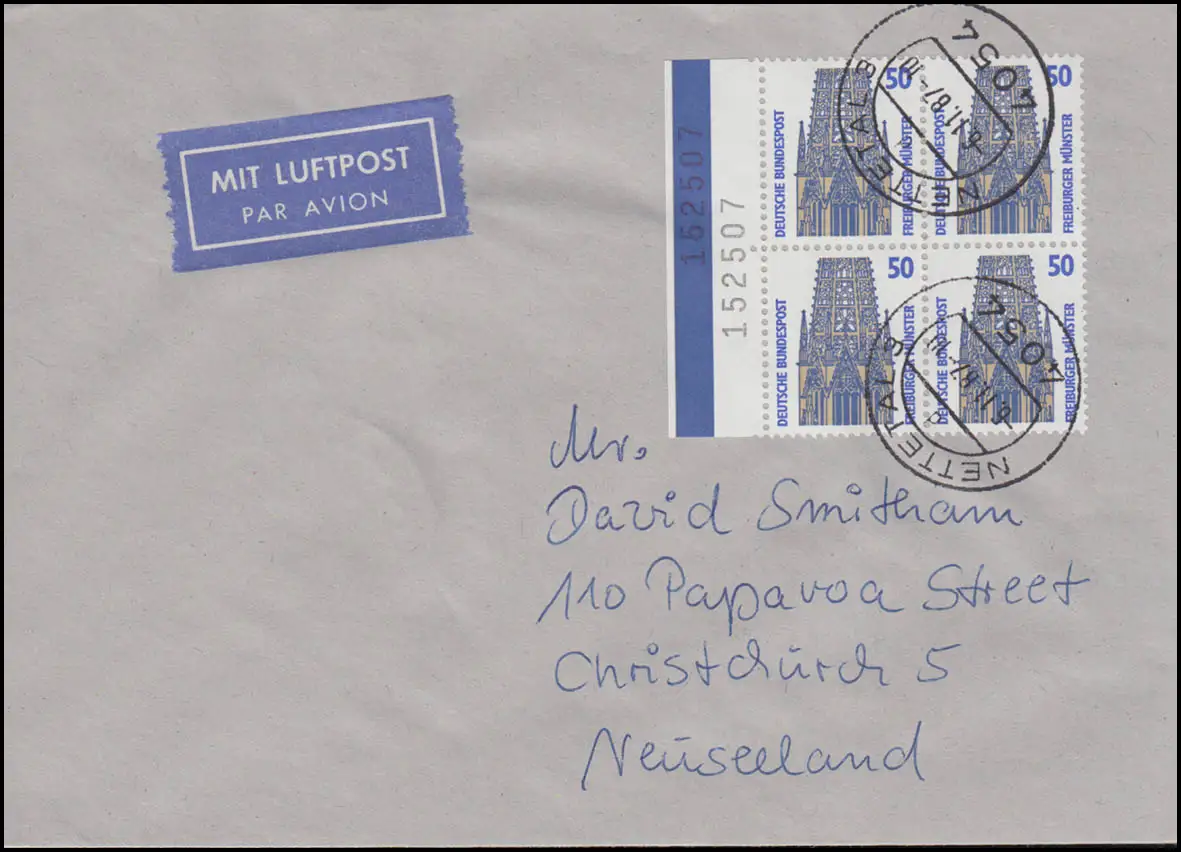 MIT LUFTPOST
PAR AVION
152507
152507
50
DEUTSCHE BUNDESPOST
FREIBURGER MÜNSTER
50
DEUTSCHE BUNDESPOST
FREIBURGER MÜNSTER
50
DEUTSCHE BUNDESPOST
FREIBURGER MÜNSTER
50
DEUTSCHE BUNDESPOST
FREIBURGER MÜNSTER
4054
NETTETAL
4054
NETTETAL
Mr.
David Smitham
110 Papavoa Street
Christchurch 5
Neuseeland